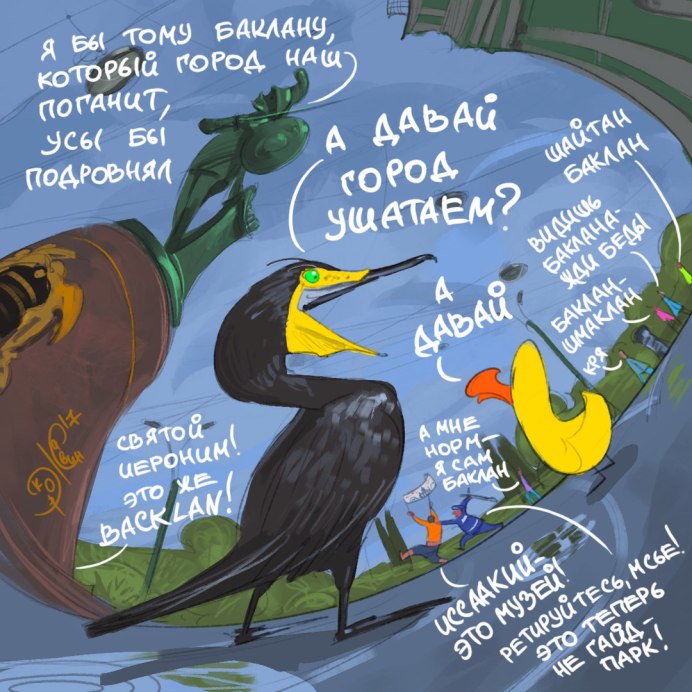 Я БЫ ТОМУ БАКЛАНУ,
КОТОРЫЙ ГОРОД НАШ
ПОГАНИТ,
УСЫ БЫ
ПОДРОВНЯЛ
А ДАВАЙ
ГОРОД
УШАТАЕМ?
А
ДАВАЙ
ШАЙТАН
БАКЛАН
ВИДИШЬ
БАКЛАНА-
ЖДИ БЕДЫ
БАКЛАН-
ШМАКЛАН-
КРЯ
А МНЕ
НОРМ-
Я САМ
БАКЛАН
СВЯТОЙ
ИЕРОНИМ!
ЭТО ЖЕ
BACKLAN!
ИССААКИЙ-
ЭТО МУЗЕЙ!
РЕТИРУЙТЕСЬ, МСЬЕ!
ЭТО ТЕПЕРЬ
НЕ ГАЙД-
ПАРК!